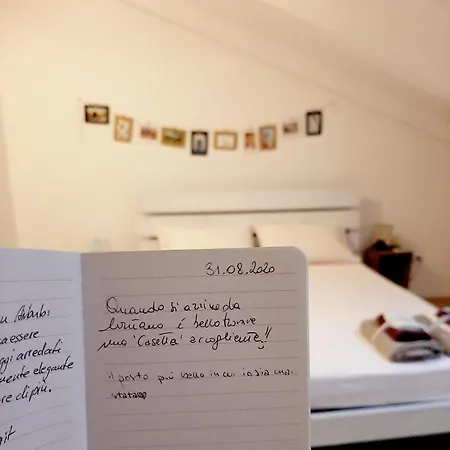 u Airbnb:
a essere
ggi arredati
mente elegante
re di più.
it
31.08.2020
Quando si arriva da
lontano è bello trovare
una 'Casetta' accogliente!!
il posto più bello in cui io sia mai
stata